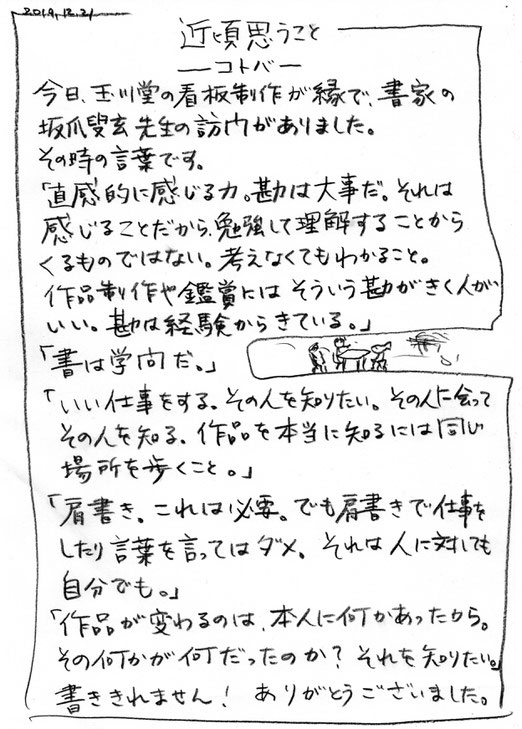 2019.12.21
近頃思うこと
―コトバ―
今日、玉川堂の看板制作が縁で、書家の
坂爪叟玄先生の訪問がありました。
その時の言葉です。
「直感的に感じる力。勘は大事だ。それは
感じることだから、勉強して理解することから
くるものではない。考えなくてもわかること。
作品制作や鑑賞にはそういう勘がきく人が
いい。勘は経験からきている。」
「書は学問だ。」
「いい仕事をする。その人を知りたい。その人に会って
その人を知る、作品を本当に知るには同じ
場所を歩くこと。」
「肩書き。これは必要。でも肩書きで仕事を
したり言葉を言ってはダメ。それは人に対しても
自分でも。」
「作品が変わるのは、本人に何かあったから。
その何かが何だったのか？それを知りたい。」
書ききれません！ ありがとうございました。